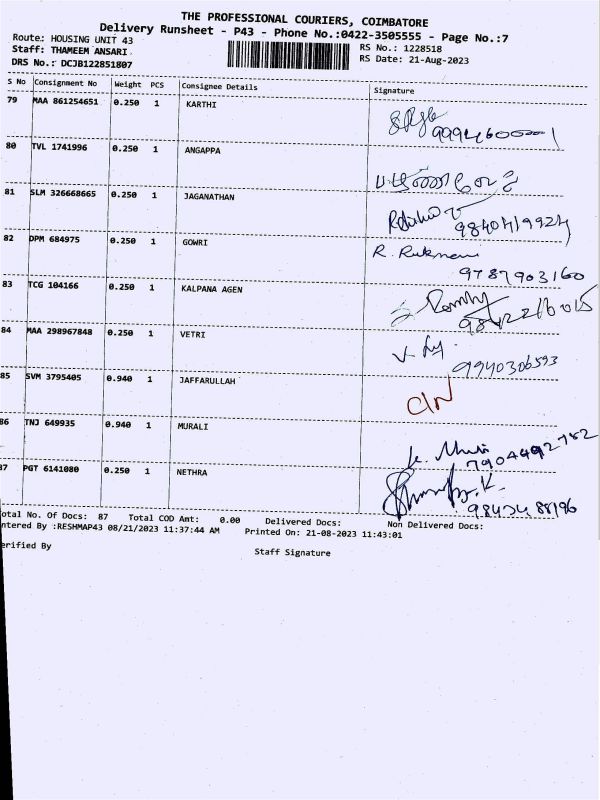 THE PROFESSIONAL COURIERS, COIMBATORE
Delivery Runsheet - P43 - Phone No.:0422-3505555 - Page No.:7
Route: HOUSING UNIT 43 RS No.: 1228518
Staff: THAMEEM ANSARI RS Date: 21-Aug-2023
DRS No.: DCJB122851807
S No Consignment No Weight PCS Consignee Details Signature
79 MAA 861254651 0.250 1 KARTHI
80 TVL 1741996 0.250 1 ANGAPPA
81 SLM 326668665 0.250 1 JAGANATHAN
9840419924
82 DPM 684975 0.250 1 GOWRI R. Rukmani
9787903160
83 TCG 104166 0.250 1 KALPANA AGEN
84 MAA 298967848 0.250 1 VETRI
9940306593
85 SVM 3795405 0.940 1 JAFFARULLAH
C/N
86 TNJ 649935 0.940 1 MURALI
7904492782
87 PGT 6141080 0.250 1 NETHRA
98434 88196
otal No. Of Docs: 87 Total COD Amt: 0.00 Delivered Docs: Non Delivered Docs:
ntered By :RESHMAP43 08/21/2023 11:37:44 AM Printed On: 21-08-2023 11:43:01
erified By Staff Signature